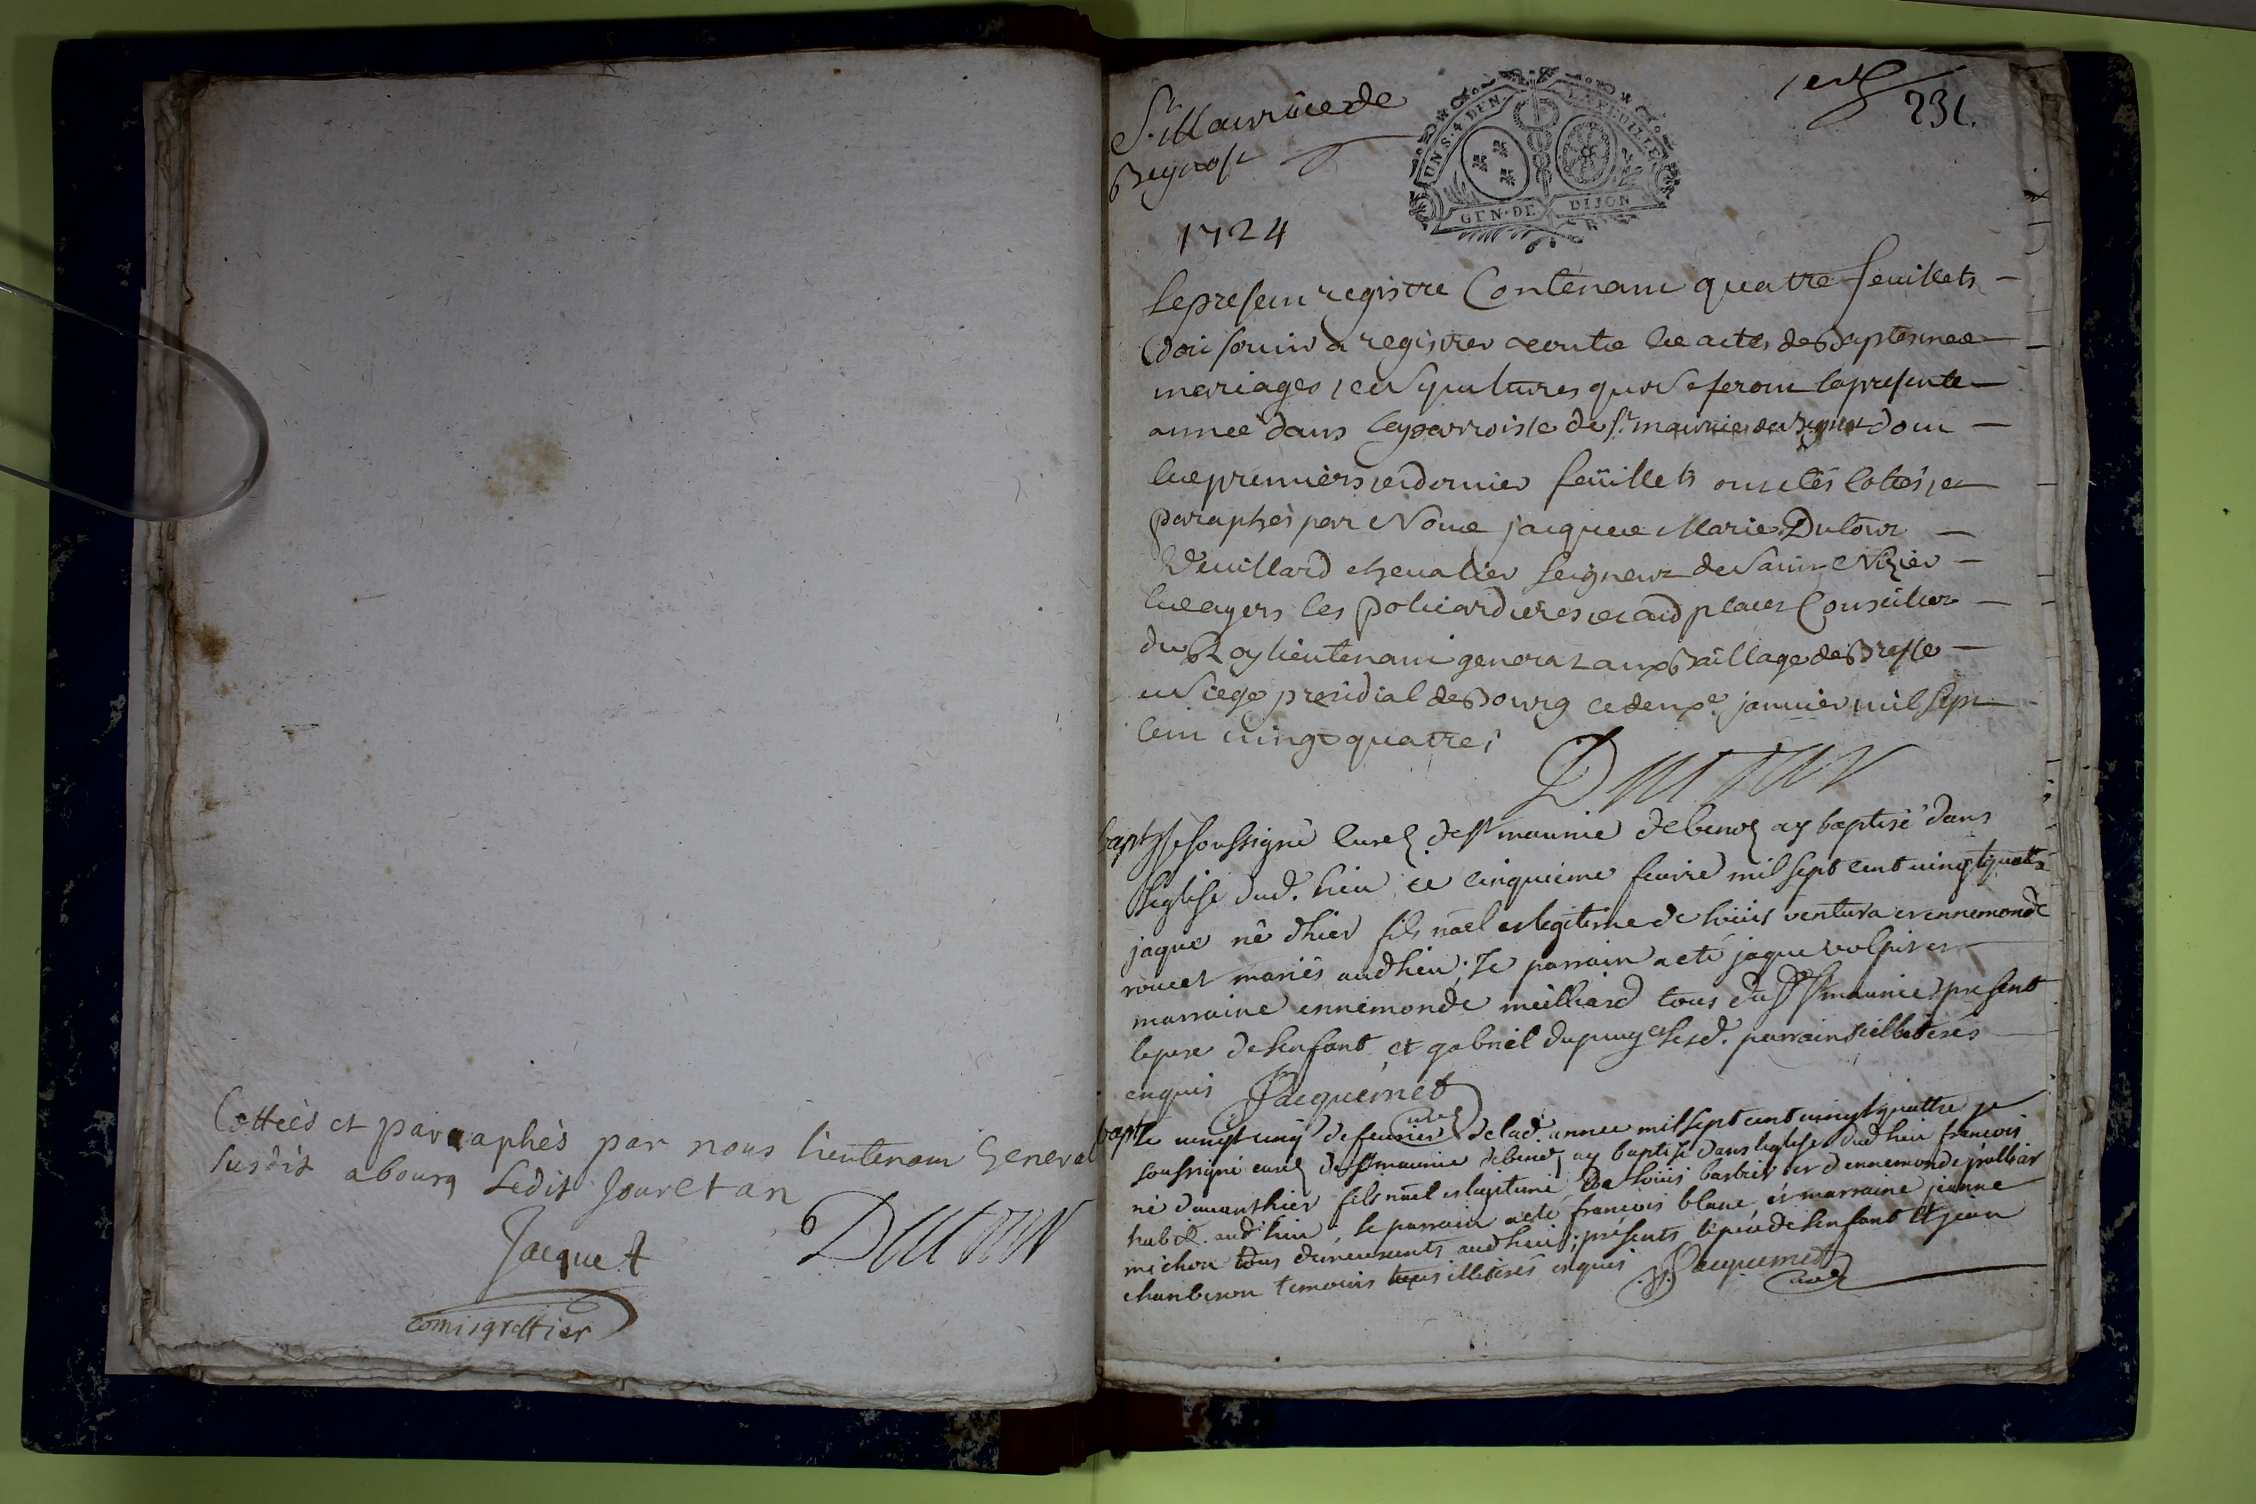 Cottées et paraaphés par nous lieutenam General
susdit abourg ledit Jour et an
Jacquet
Dutour
comis greffier
St Maurice de
Beynost
1er
231.
UN S. 4 DEN. LA FEUILLE
GEN. DE DIJON
1724
Le presem registre Contenam quatre feuillets
doit servir a registrer les actes de Baptesmes
mariages, et Sepultures qui se feront la presente
année dans la parroisse de St maurice de Beynost dont
les premiers et dernier feüillets ont etés cottés, et
paraphés par Nous jacques Marie Dutour
Devuillard chevalier seigneur de Saint Nizier
les Poliardieres et aud places Conseiller
du Roy lieutenam general aux Baillage de Bresse
et siege presidial de Bourg ce deuxe. janvier mil sept
cent vingt quatre,
Dutour
bapt. Je soussigné Curé de St maurice de benoz ay baptisé dans
l'eglise dud. lieu ce cinquieme fevrié mil sept cent vingt quatre
jaque né d'hier fils näel et legitime de loüis ventura et ennemonde
roucet mariés aud lieu; le parrain a eté jaque volpis et
marraine ennemonde meilliard tous du d. St maurice present
le pere de lenfant et gabriel dupuy et lesd. parrains illiterés
enquis Jacquemet curé
bapt. le vingt cinq de fevrier de lad. annee mil sept cent vingt quattre je
soussigné curé de St maurice debenoz ay baptisé dans leglise dud lieu françois
né d'avanthier fils näel et legitime de loüis barbier et d'ennemonde
habit. aud. lieu, le parrain a eté francois blanc et marraine jeanne
michon tous demeurants aud lieu; présents le pere de lenfant et jean
chamberon temoins tous illiterés enquis J. Jacquemet
curé